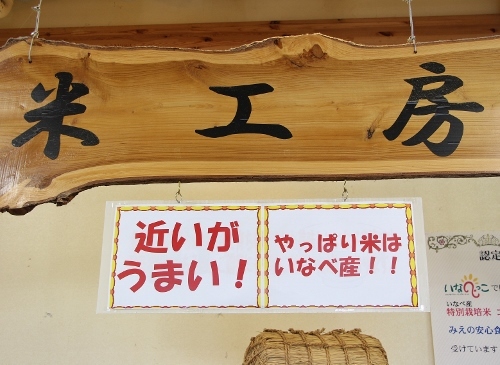 米工房
近いが
うまい！
やっぱり米は
いなべ産！！
認定
いなべっこ
いなべ産
特別栽培米
みえの安心食
受けています